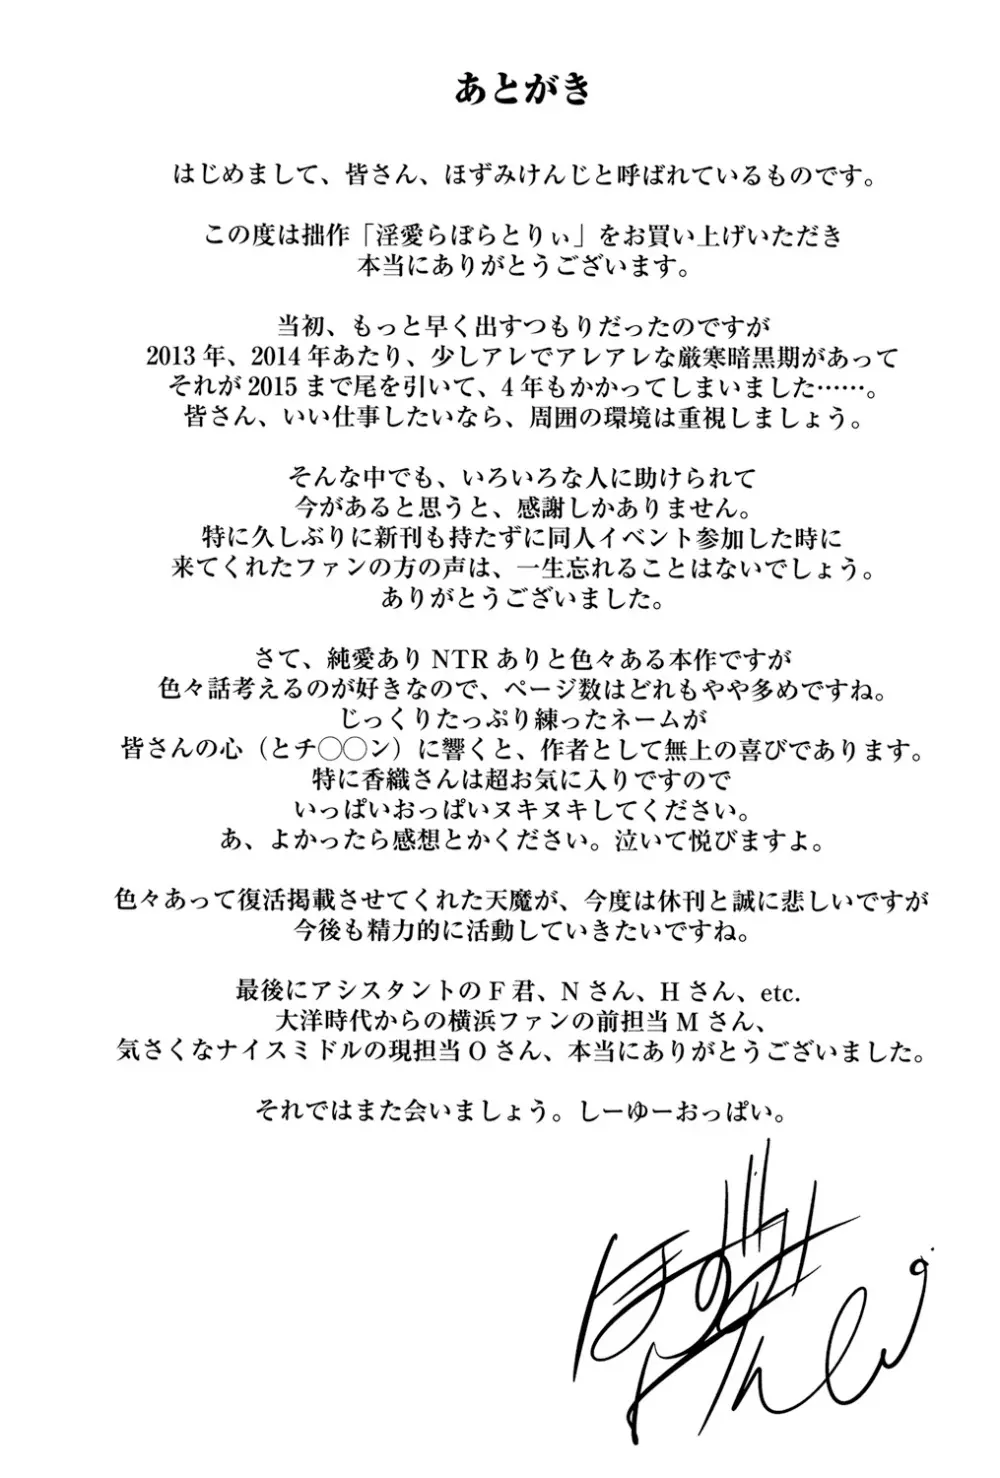 あとがき
はじめまして、皆さん、ほずみけんじと呼ばれているものです。
この度は拙作「淫愛らぼらとりぃ」をお買い上げいただき
本当にありがとうございます。
当初、もっと早く出すつもりだったのですが
2013 年、2014 年あたり、少しアレでアレアレな厳寒暗黒期があって
それが 2015 まで尾を引いて、4 年もかかってしまいました……。
皆さん、いい仕事したいなら、周囲の環境は重視しましょう。
そんな中でも、いろいろな人に助けられて
今があると思うと、感謝しかありません。
特に久しぶりに新刊も持たずに同人イベント参加した時に
来てくれたファンの方の声は、一生忘れることはないでしょう。
ありがとうございました。
さて、純愛あり NTR ありと色々ある本作ですが
色々話考えるのが好きなので、ページ数はどれもやや多めですね。
じっくりたっぷり練ったネームが
皆さんの心（とチ◯◯ン）に響くと、作者として無上の喜びであります。
特に香織さんは超お気に入りですので
いっぱいおっぱいヌキヌキしてください。
あ、よかったら感想とかください。泣いて悦びますよ。
色々あって復活掲載させてくれた天魔が、今度は休刊と誠に悲しいですが
今後も精力的に活動していきたいですね。
最後にアシスタントの F 君、N さん、H さん、etc.
大洋時代からの横浜ファンの前担当 M さん、
気さくなナイスミドルの現担当 O さん、本当にありがとうございました。
それではまた会いましょう。しーゆーおっぱい。
ほずみけんじ